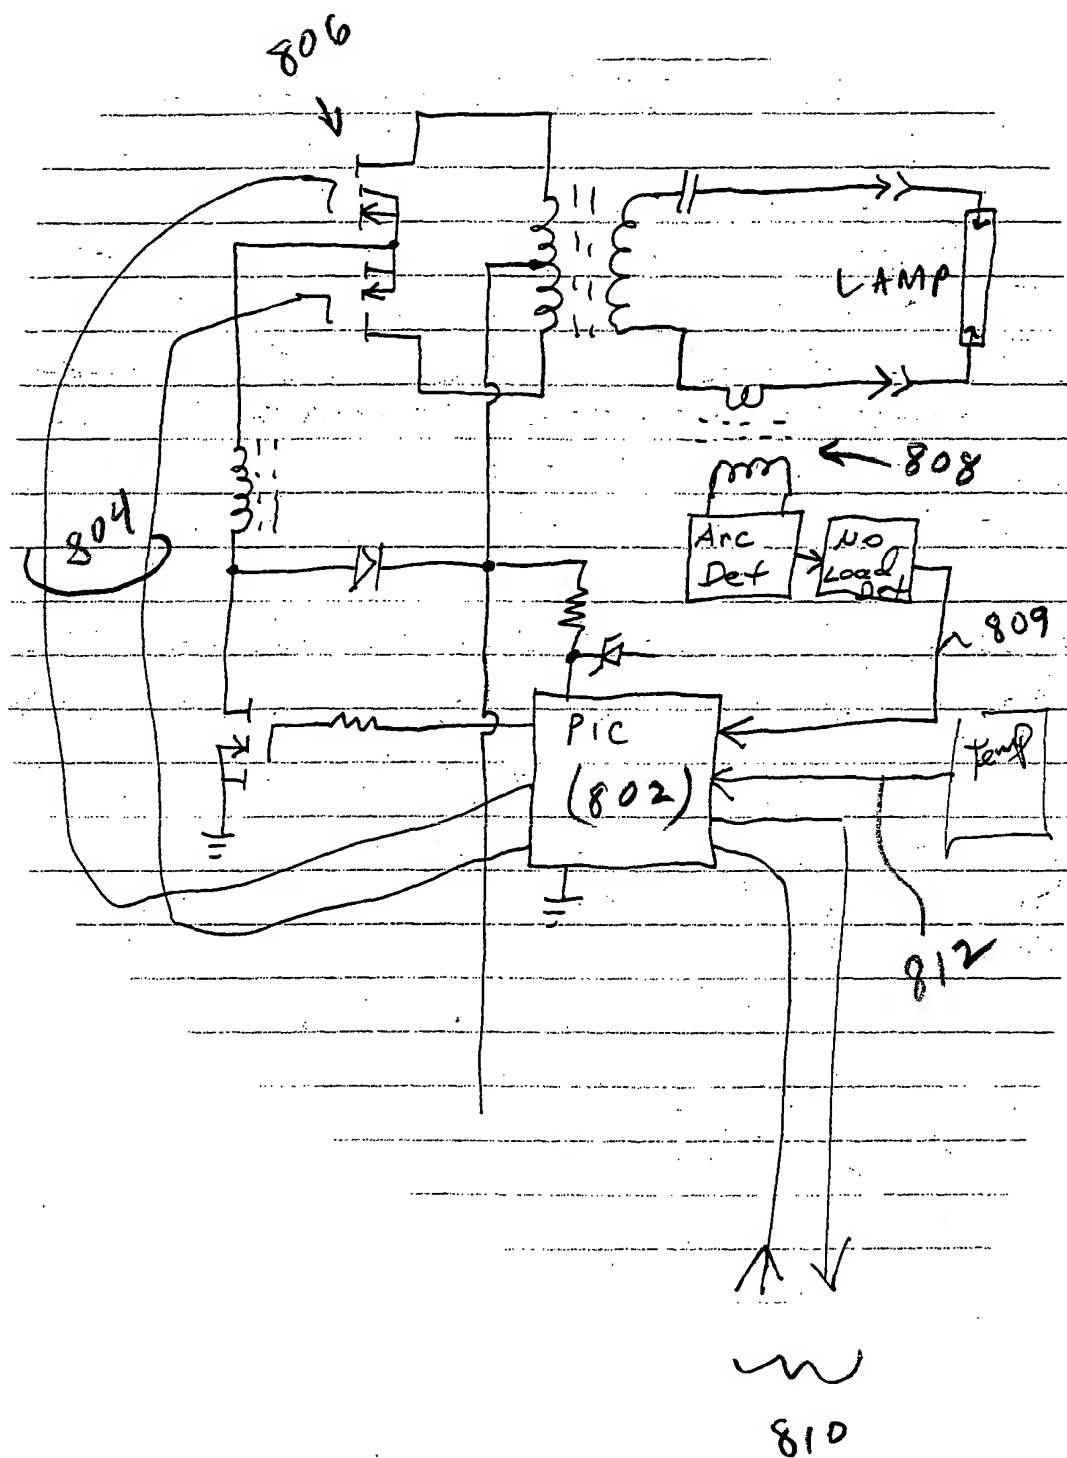 806
LAMP
808
804
Arc
Det
No
Load
Det
809
PIC
(802)
Temp
812
810